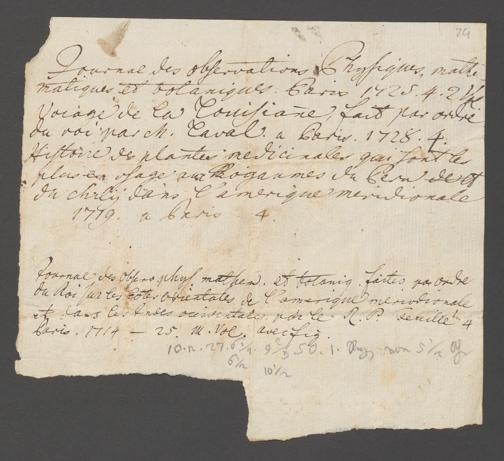 74
Journal des observations Physiques, mathe
matiques et botaniques. Paris 1725. 4. 2 Vol.
Voiage de la Louisiane, fait par ordre
du roi par ch. Laval. a Paris. 1728. 4.
Histoire des plantes medicinales qui sont les
plus en usage aux Rogaumes du Perou et
du chily dans l'amerique meridionale
1719. a Paris 4.
Journal des observ phys mathem. et botaniq. faites par ordre
du Roi sur les côtes orientales de l'amerique meridionale
et dans les Indes occidentales par le R. P. feuillé 4
Paris. 1714 - 25. III. Vol. avec fig.
10. n. 27. 6 1/4 50. 1. 5 1/2
6 1/2 10 1/2